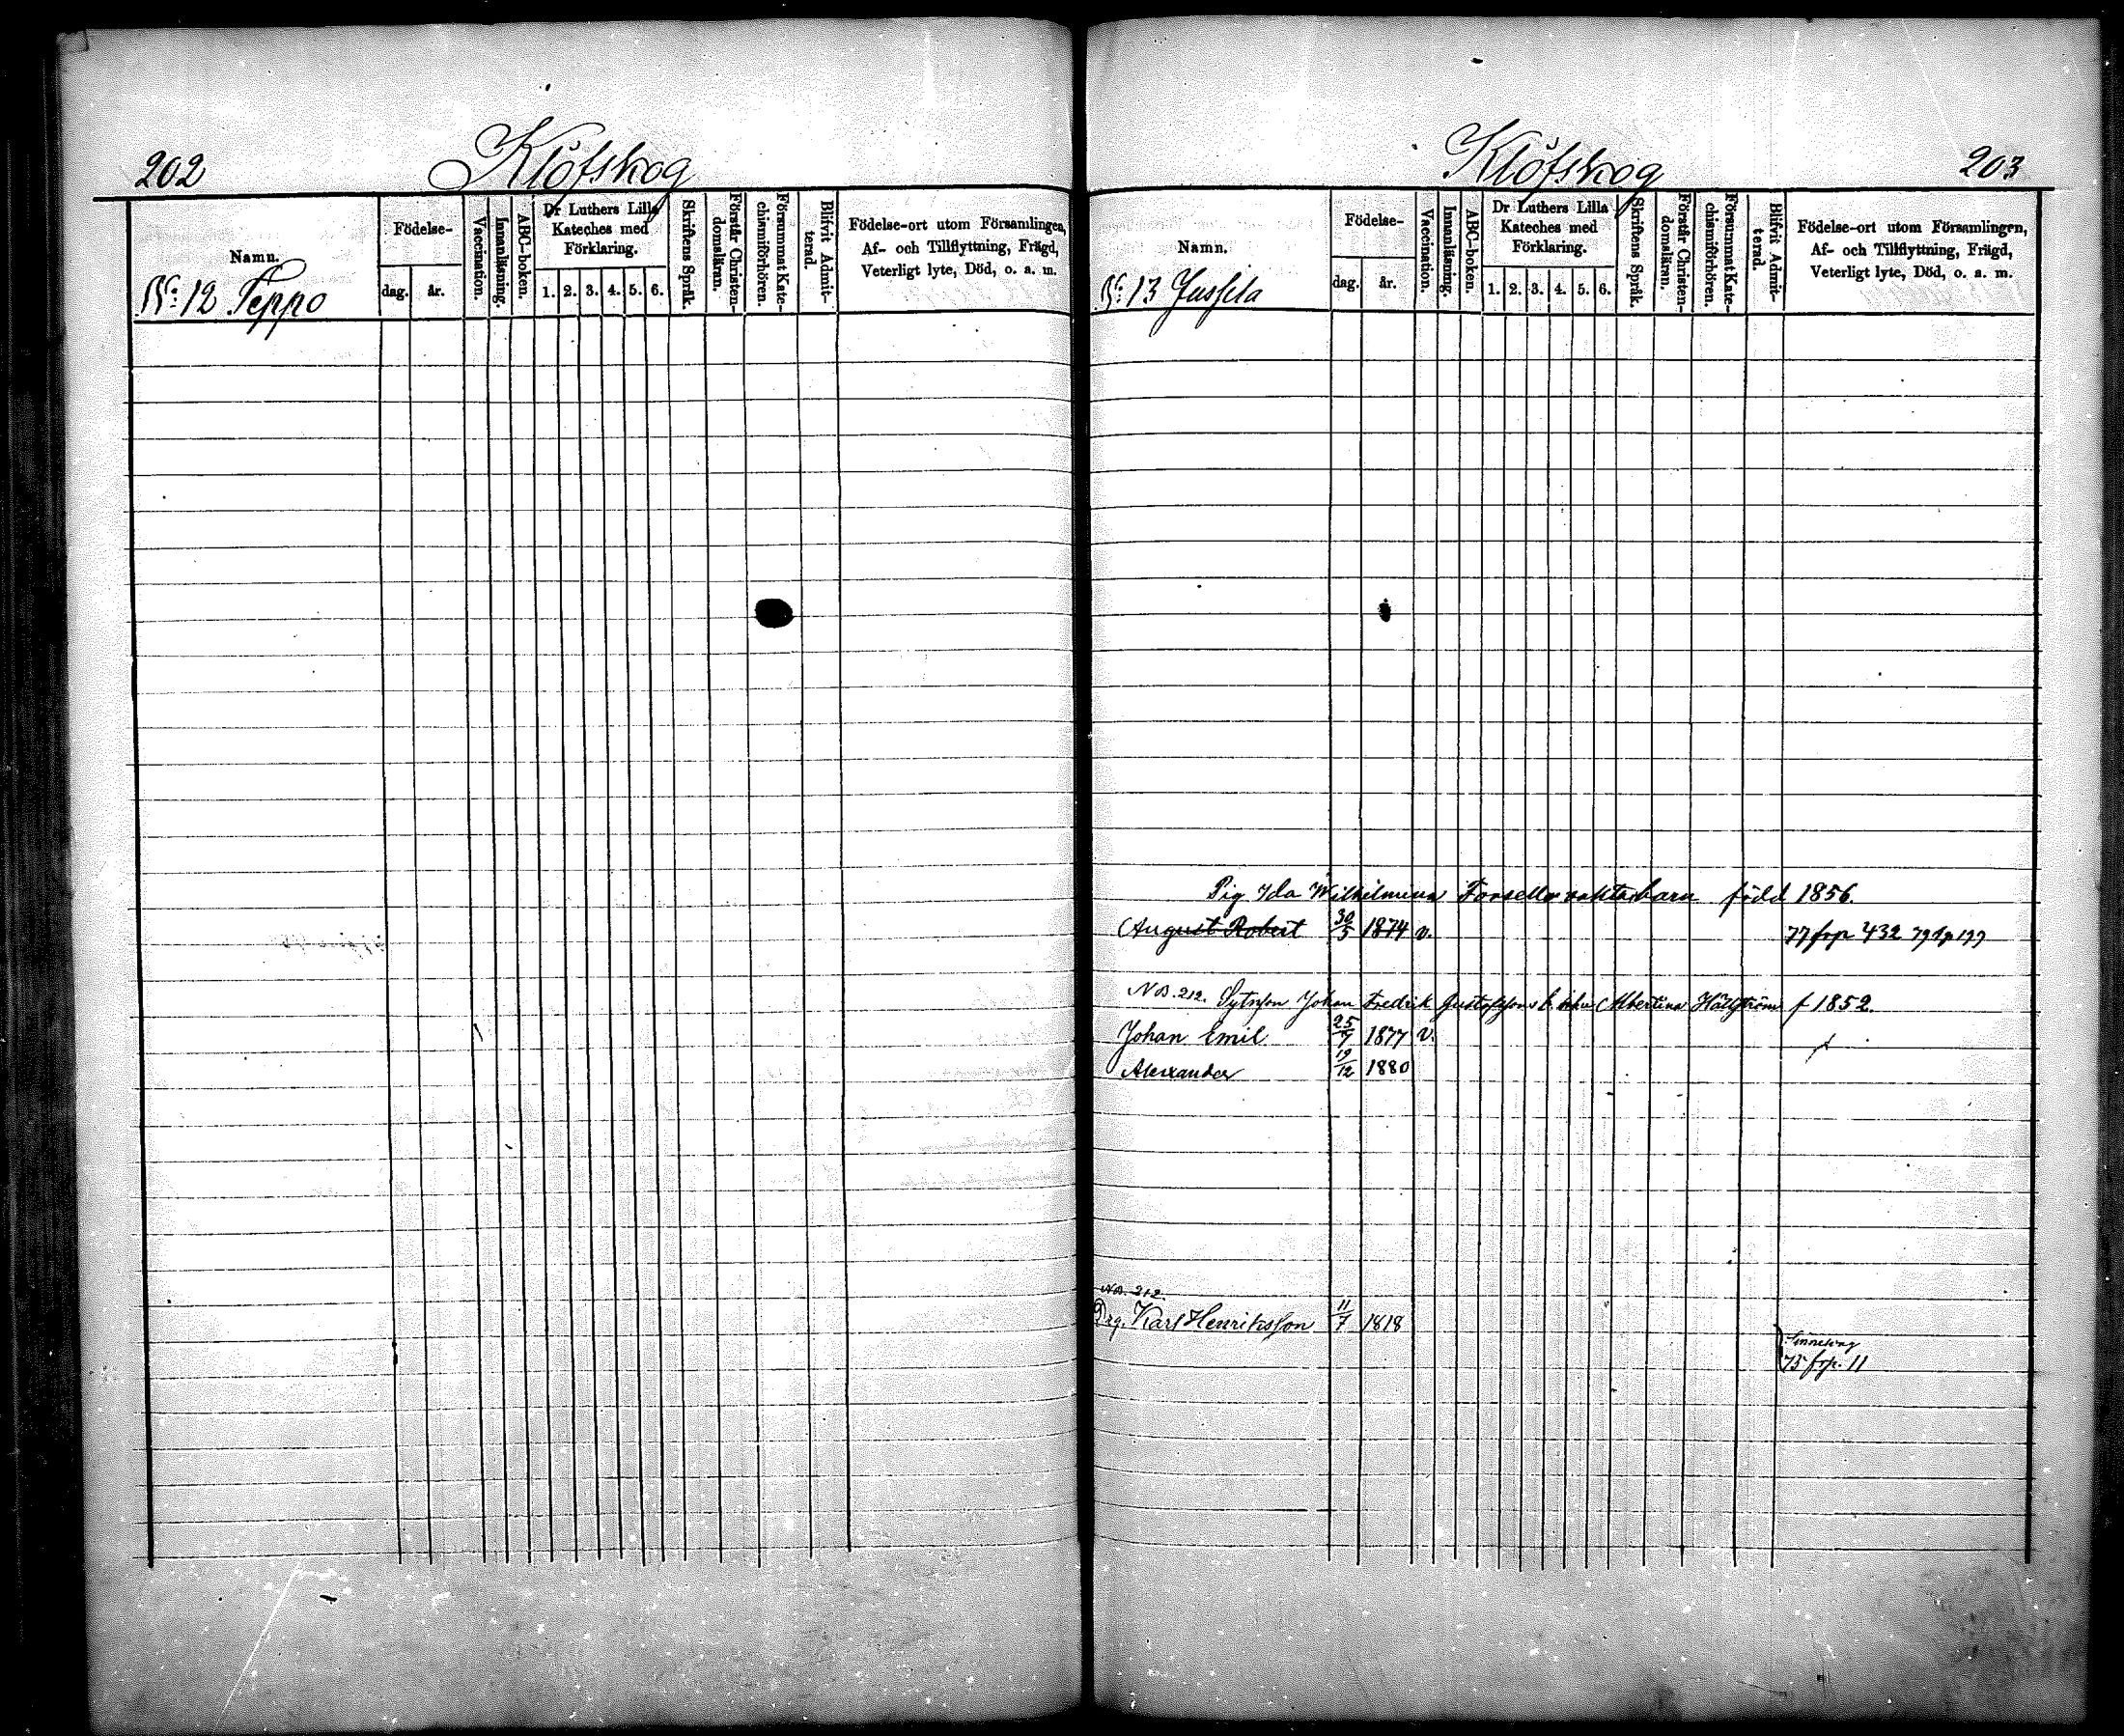 202 Klöfskog
Namn.
Födelse-
dag. år.
Vaccination.
Innanläsning.
ABC-boken.
Dr Luthers Lilla
Kateches med
Förklaring.
1. 2. 3. 4. 5. 6.
Skriftens Språk.
Förstår Christen-
domsläran.
Försummat Kate-
chismiförhören.
Blifvit Admit-
terad.
Födelse-ort utom Församlingen,
Af- och Tillflyttning, Frägd,
Veterligt lyte, Död, o. a. m.
No: 12 Teppo
Klöfskog 203
Namn.
Födelse-
dag. år.
Vaccination.
Innanläsning.
ABC-boken.
Dr Luthers Lilla
Kateches med
Förklaring.
1. 2. 3. 4. 5. 6.
Skriftens Språk.
Förstår Christen-
domsläran.
Försummat Kate-
chismiförhören.
Blifvit Admit-
terad.
Födelse-ort utom Församlingen,
Af- och Tillflyttning, Frägd,
Veterligt lyte, Död, o. a. m.
No: 13 Jussila
Pig Ida Wilhelmina född 1856.
August Robert 30/5 1874 v. 77 frp 432
NB. 212. Sytnson Johan Fredrik Gustafssons Albertina Hällström f 1852.
Johan Emil 25/9 1877 v.
Alexander 19/12 1880
NB. 212.
Drg. Karl Henriksson 11/7 1818
75 frp. 11